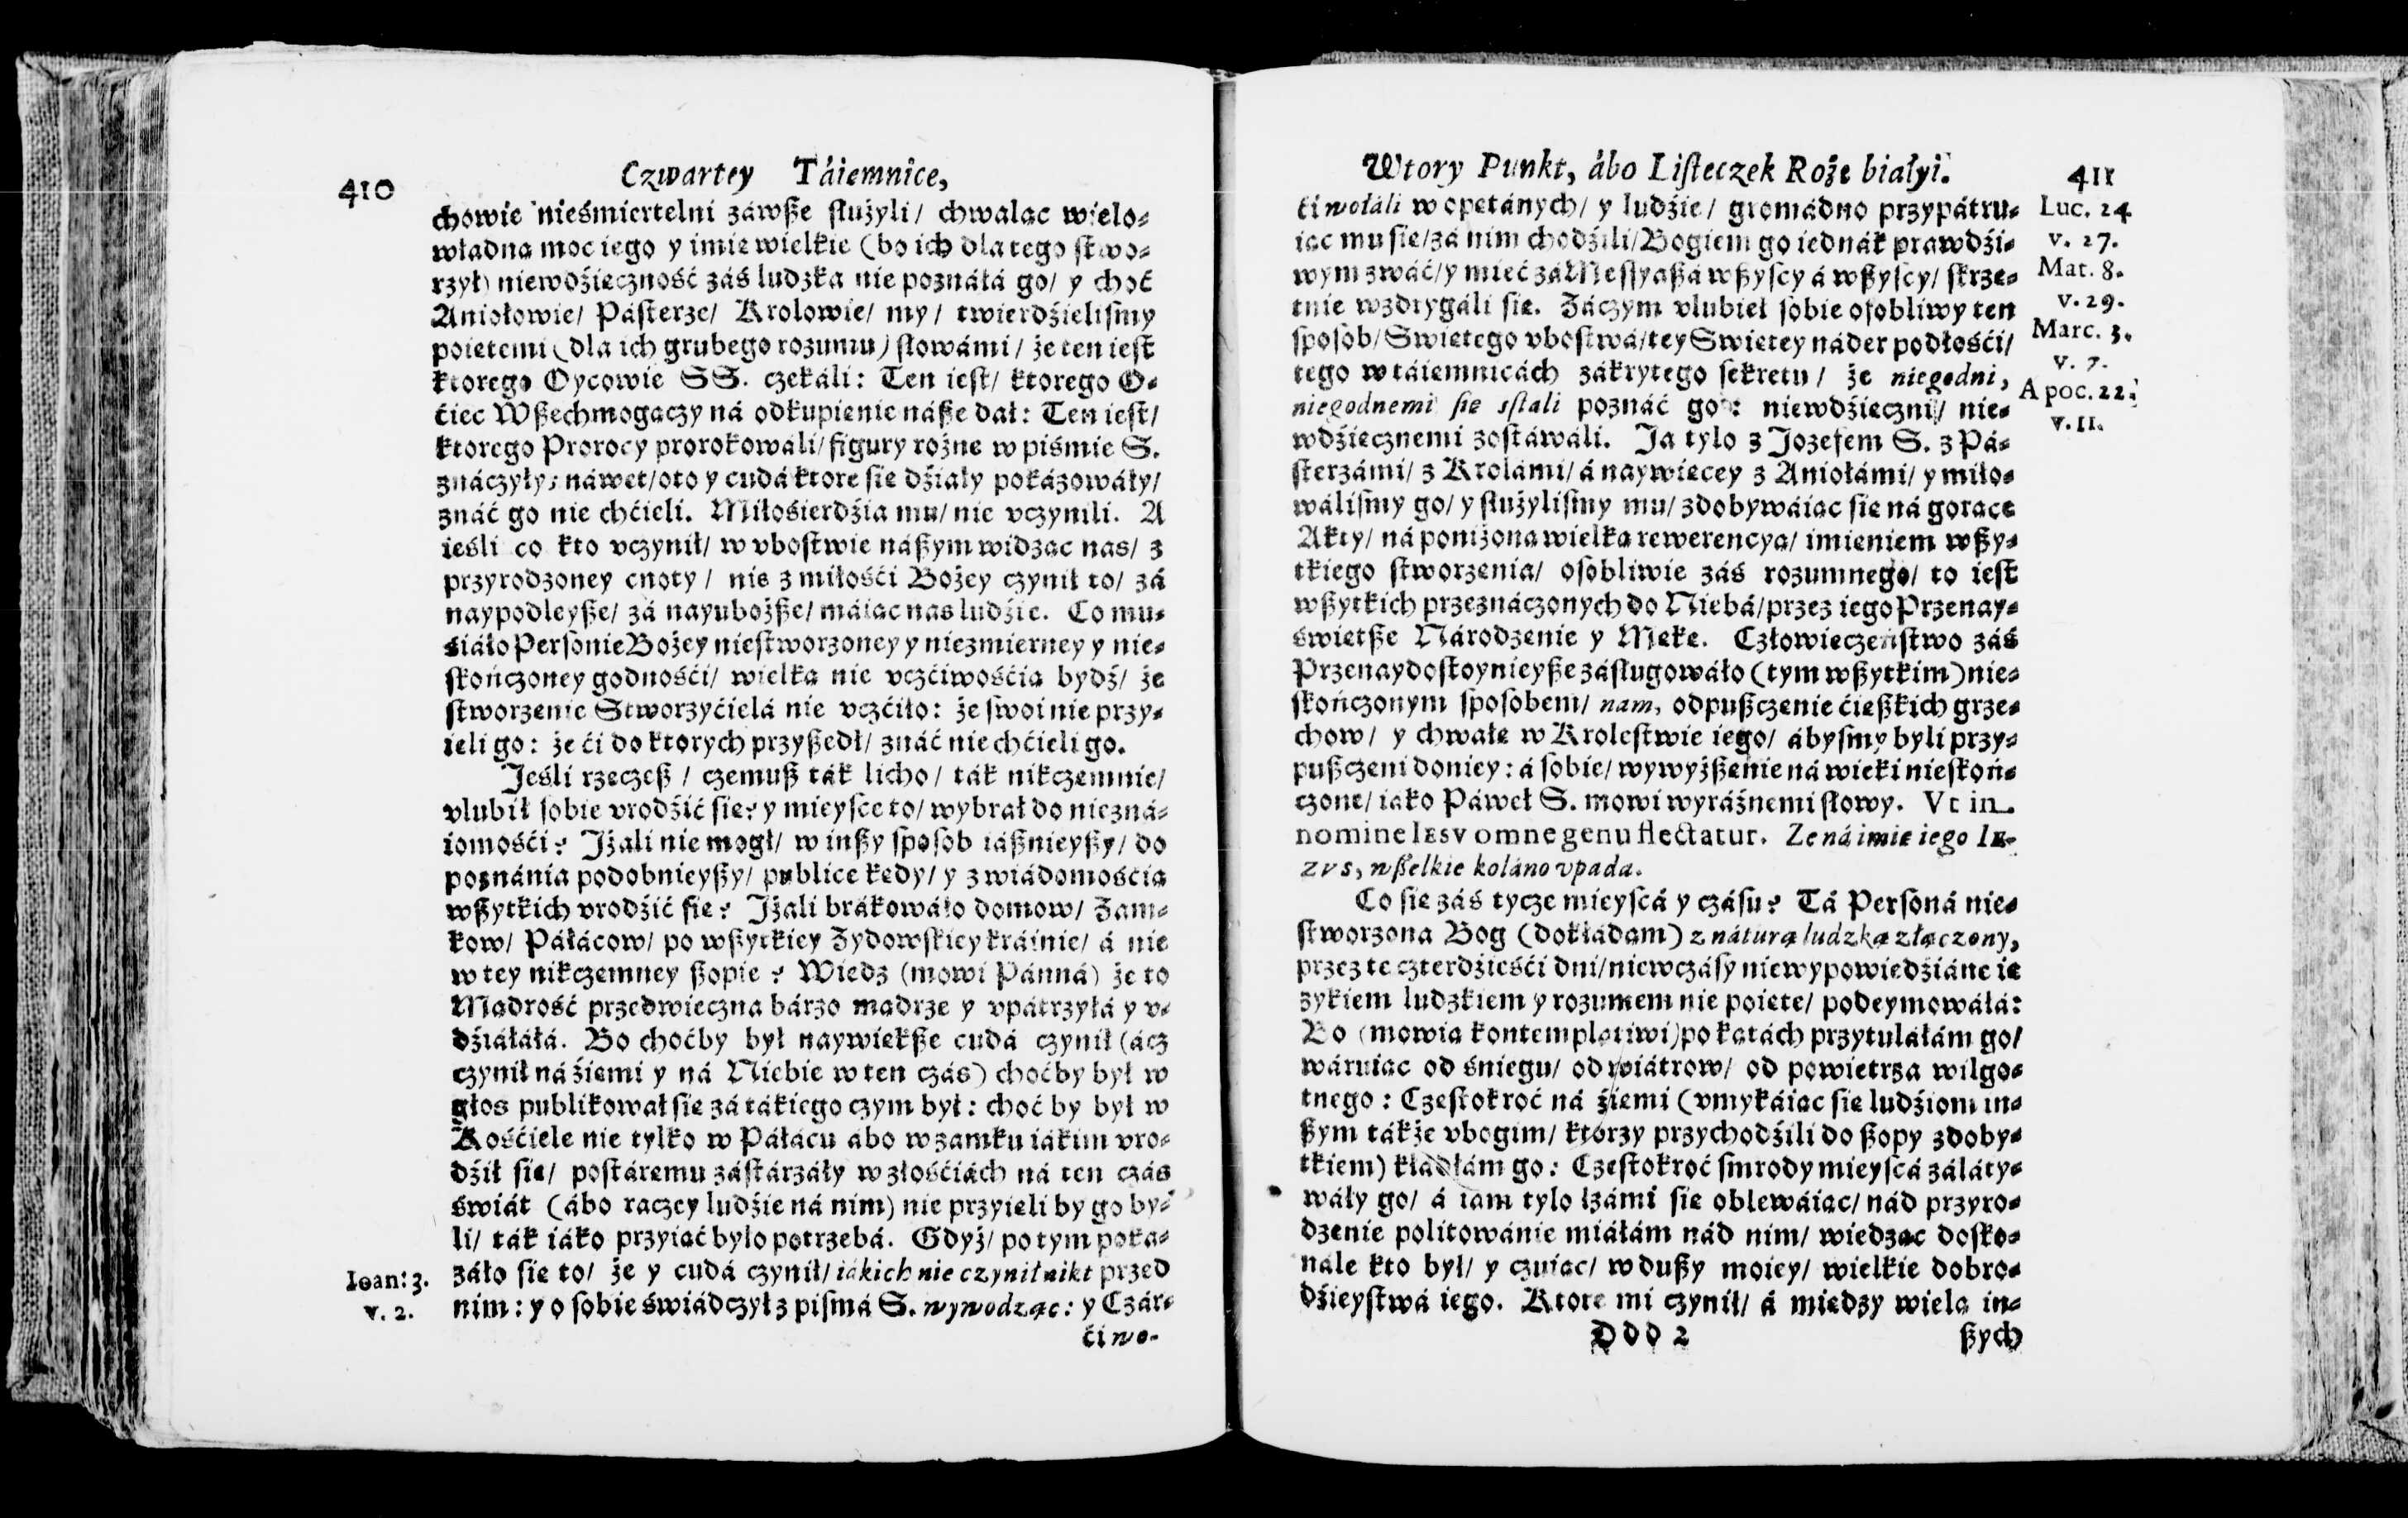 410
Czwartey Táiemnice,
chowie nieśmiertelni záwße służyli/ chwaląc wielo-
władną moc iego y imię wielkie (bo ich dla tego stwo-
rzył) niewdźięczność záś ludzka nie poznáłá go/ y choć
Aniołowie/ Pásterze/ Krolowie/ my/ twierdźieliſmy
poiętemi (dla ich grubego rozumu) słowámi/ że ten iest
ktorego Oycowie SS. czekáli: Ten iest/ ktorego O-
ćiec Wßechmogączy ná odkupienie náße dał: Ten iest/
ktorego Prorocy prorokowáli/ figury rożne w piśmie S.
znáczyły; náwet/ oto y cudá ktore się dźiały pokázowáły/
znáć go nie chćieli. Miłośierdźia mu/ nie vczynili. A
ieśli co kto vczynił/ w vbostwie náßym widząc nas/ z
przyrodzoney cnoty/ nie z miłośći Bożey czynił to/ zá
naypodleyße/ zá nayubożße/ máiąc nas ludźie. Co mu-
śiáło Perſonie Bożey niestworzoney y niezmierney y nie-
skończoney godnośći/ wielką nie vczćiwośćią bydź/ że
stworzenie Stworzyćielá nie vczćiło: że ſwoi nie przy-
ięli go: że ći do ktorych przyßedł/ znáć nie chćieli go.
Jeśli rzeczeß/ czemuß ták licho/ ták nikczemnie/
vlubił ſobie vrodźić się? y mieyſce to/ wybrał do niezná-
iomośći? Jżali nie mogł/ w inßy ſpoſob iáßnieyßy/ do
poznánia podobnieyßy/ publice kędy/ y z wiádomośćią
wßytkich vrodźić się? Jżali brákowáło domow/ Zam-
kow/ Páłácow/ po wßytkiey Zydowskiey kráinie/ á nie
w tey nikczemney ßopie? Wiedz (mowi Pánná) że to
Mądrość przedwieczna bárzo mądrze y vpátrzyłá y v-
dźiáłáłá. Bo choćby był naywiękße cudá czynił (ácz
czynił ná źiemi y ná Niebie w ten czás) choćby był w
głos publikował się zá tákiego czym był: choć by był w
Kośćiele nie tylko w Páłácu ábo w zamku iákim vro-
dźił się/ postáremu zástárzáły w złośćiách ná ten czás
świát (ábo raczey ludźie ná nim) nie przyięli by go by-
li/ ták iáko przyiąć było potrzebá. Gdyż/ po tym poka-
Ioan: 3. záło się to/ że y cudá czynił/ iákich nie czynił nikt przed
v. 2. nim: y o ſobie świádczył z piſmá S. wywodząc: y Czár-
ći wo-
Wtory Punkt, ábo Listeczek Roże białyi. 411
ći wołáli w opętánych/ y ludźie/ gromádno przypátru-
iąc mu się/ zá nim chodźili/ Bogiem go iednák prawdźi-
wym zwáć/ y mieć zá Meſſyaßá wßyſcy á wßyſcy/ skrzę-
tnie wzdrygáli się. Záczym vlubieł ſobie oſobliwy ten
ſpoſob/ Swiętego vbostwá/ tey Swiętey náder podłośći/
tego w táiemnicách zákrytego ſekretu/ że niegodni,
niegodnemi się sstali poznáć go: niewdźięczni/ nie-
wdźięcznemi zostáwáli. Ja tylo z Jozefem S. z Pá-
sterzámi/ z Krolámi/ á naywięcey z Aniołámi/ y miło-
wáliſmy go/ y służyliſmy mu/ zdobywáiąc się ná gorące
Akty/ ná poniżoną wielką rewerencyą/ imieniem wßy-
tkiego stworzenia/ oſobliwie záś rozumnego/ to iest
wßytkich przeznáczonych do Niebá/ przez iego Przenay-
świętße Národzenie y Mękę. Człowieczeństwo záś
Przenaydostoynieyße zásługowáło (tym wßytkim) nie-
skończonym ſpoſobem/ nam, odpußczenie ćięßkich grze-
chow/ y chwałę w Krolestwie iego/ ábyſmy byli przy-
pußczeni do niey: á ſobie/ wywyżßenie ná wieki nieskoń-
czone/ iáko Páweł S. mowi wyráźnemi słowy. Vt in
nomine IESV omne genu flectatur. Ze ná imię iego IE-
ZVS, wßelkie koláno vpada.
Co się záś tycze mieyſcá y czáſu? Tá Perſoná nie-
stworzona Bog (dokłádam) z náturą ludzką złączony,
przez te czterdźieśći dni/ niewczáſy niewypowiedźiáne ię
zykiem ludzkiem y rozumem nie poięte/ podeymowáłá:
Bo (mowią kontemplatiwi) po kątách przytuláłám go/
wáruiąc od śniegu/ od wiátrow/ od powietrza wilgo-
tnego: Częstokroć ná źiemi (vmykáiąc się ludźiom in-
ßym tákże vbogim/ ktorzy przychodźili do ßopy z doby-
tkiem) kładłám go: Częstokroć ſmrody mieyſcá záláty-
wáły go/ á iam tylo łzámi się oblewáiąc/ nád przyro-
dzenie politowánie miáłám nád nim/ wiedząc dosko-
nále kto był/ y czuiąc/ w dußy moiey/ wielkie dobro-
dźieystwá iego. Ktore mi czynił/ á między wielą in-
Ddd 2 ßych
Luc. 24
v. 27.
Mat. 8.
v. 29.
Marc. 3.
v. 7.
Apoc. 22.
v. 11.